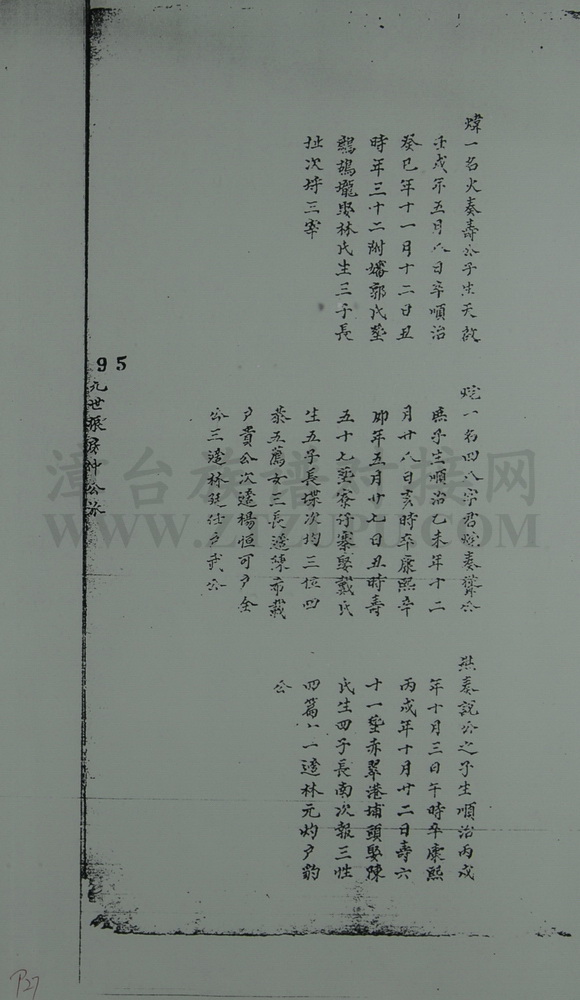 煒一名火奏壽公子生天啟
壬戌年五月八日卒順治
癸巳年十一月十二日丑
時年三十二附嬸郭氏塋
鷓鴣壠娶林氏生三子長
址次垺三宰
一名四八字君燦奏公
庶子生順治乙未年十二
月廿八日亥時卒康熙辛
卯年五月廿七日丑時壽
五十七塋寮仔寨娶戴氏
生五子長堞次均三位四
恭五萬女三長適陳布載
户貴公次適楊恒可户全
公三適林廷仕户武公
奏説公之子生順治丙戌
年十月三日午時卒康熙
丙戌年十月廿二日壽六
十一塋赤翠港埔頭娶陳
氏生四子長南次報三性
四篇女一適林元灼户豹
公
95
九世振房仲公派
漳台族谱对接网
WWW.ZTZUPU.COM
P27